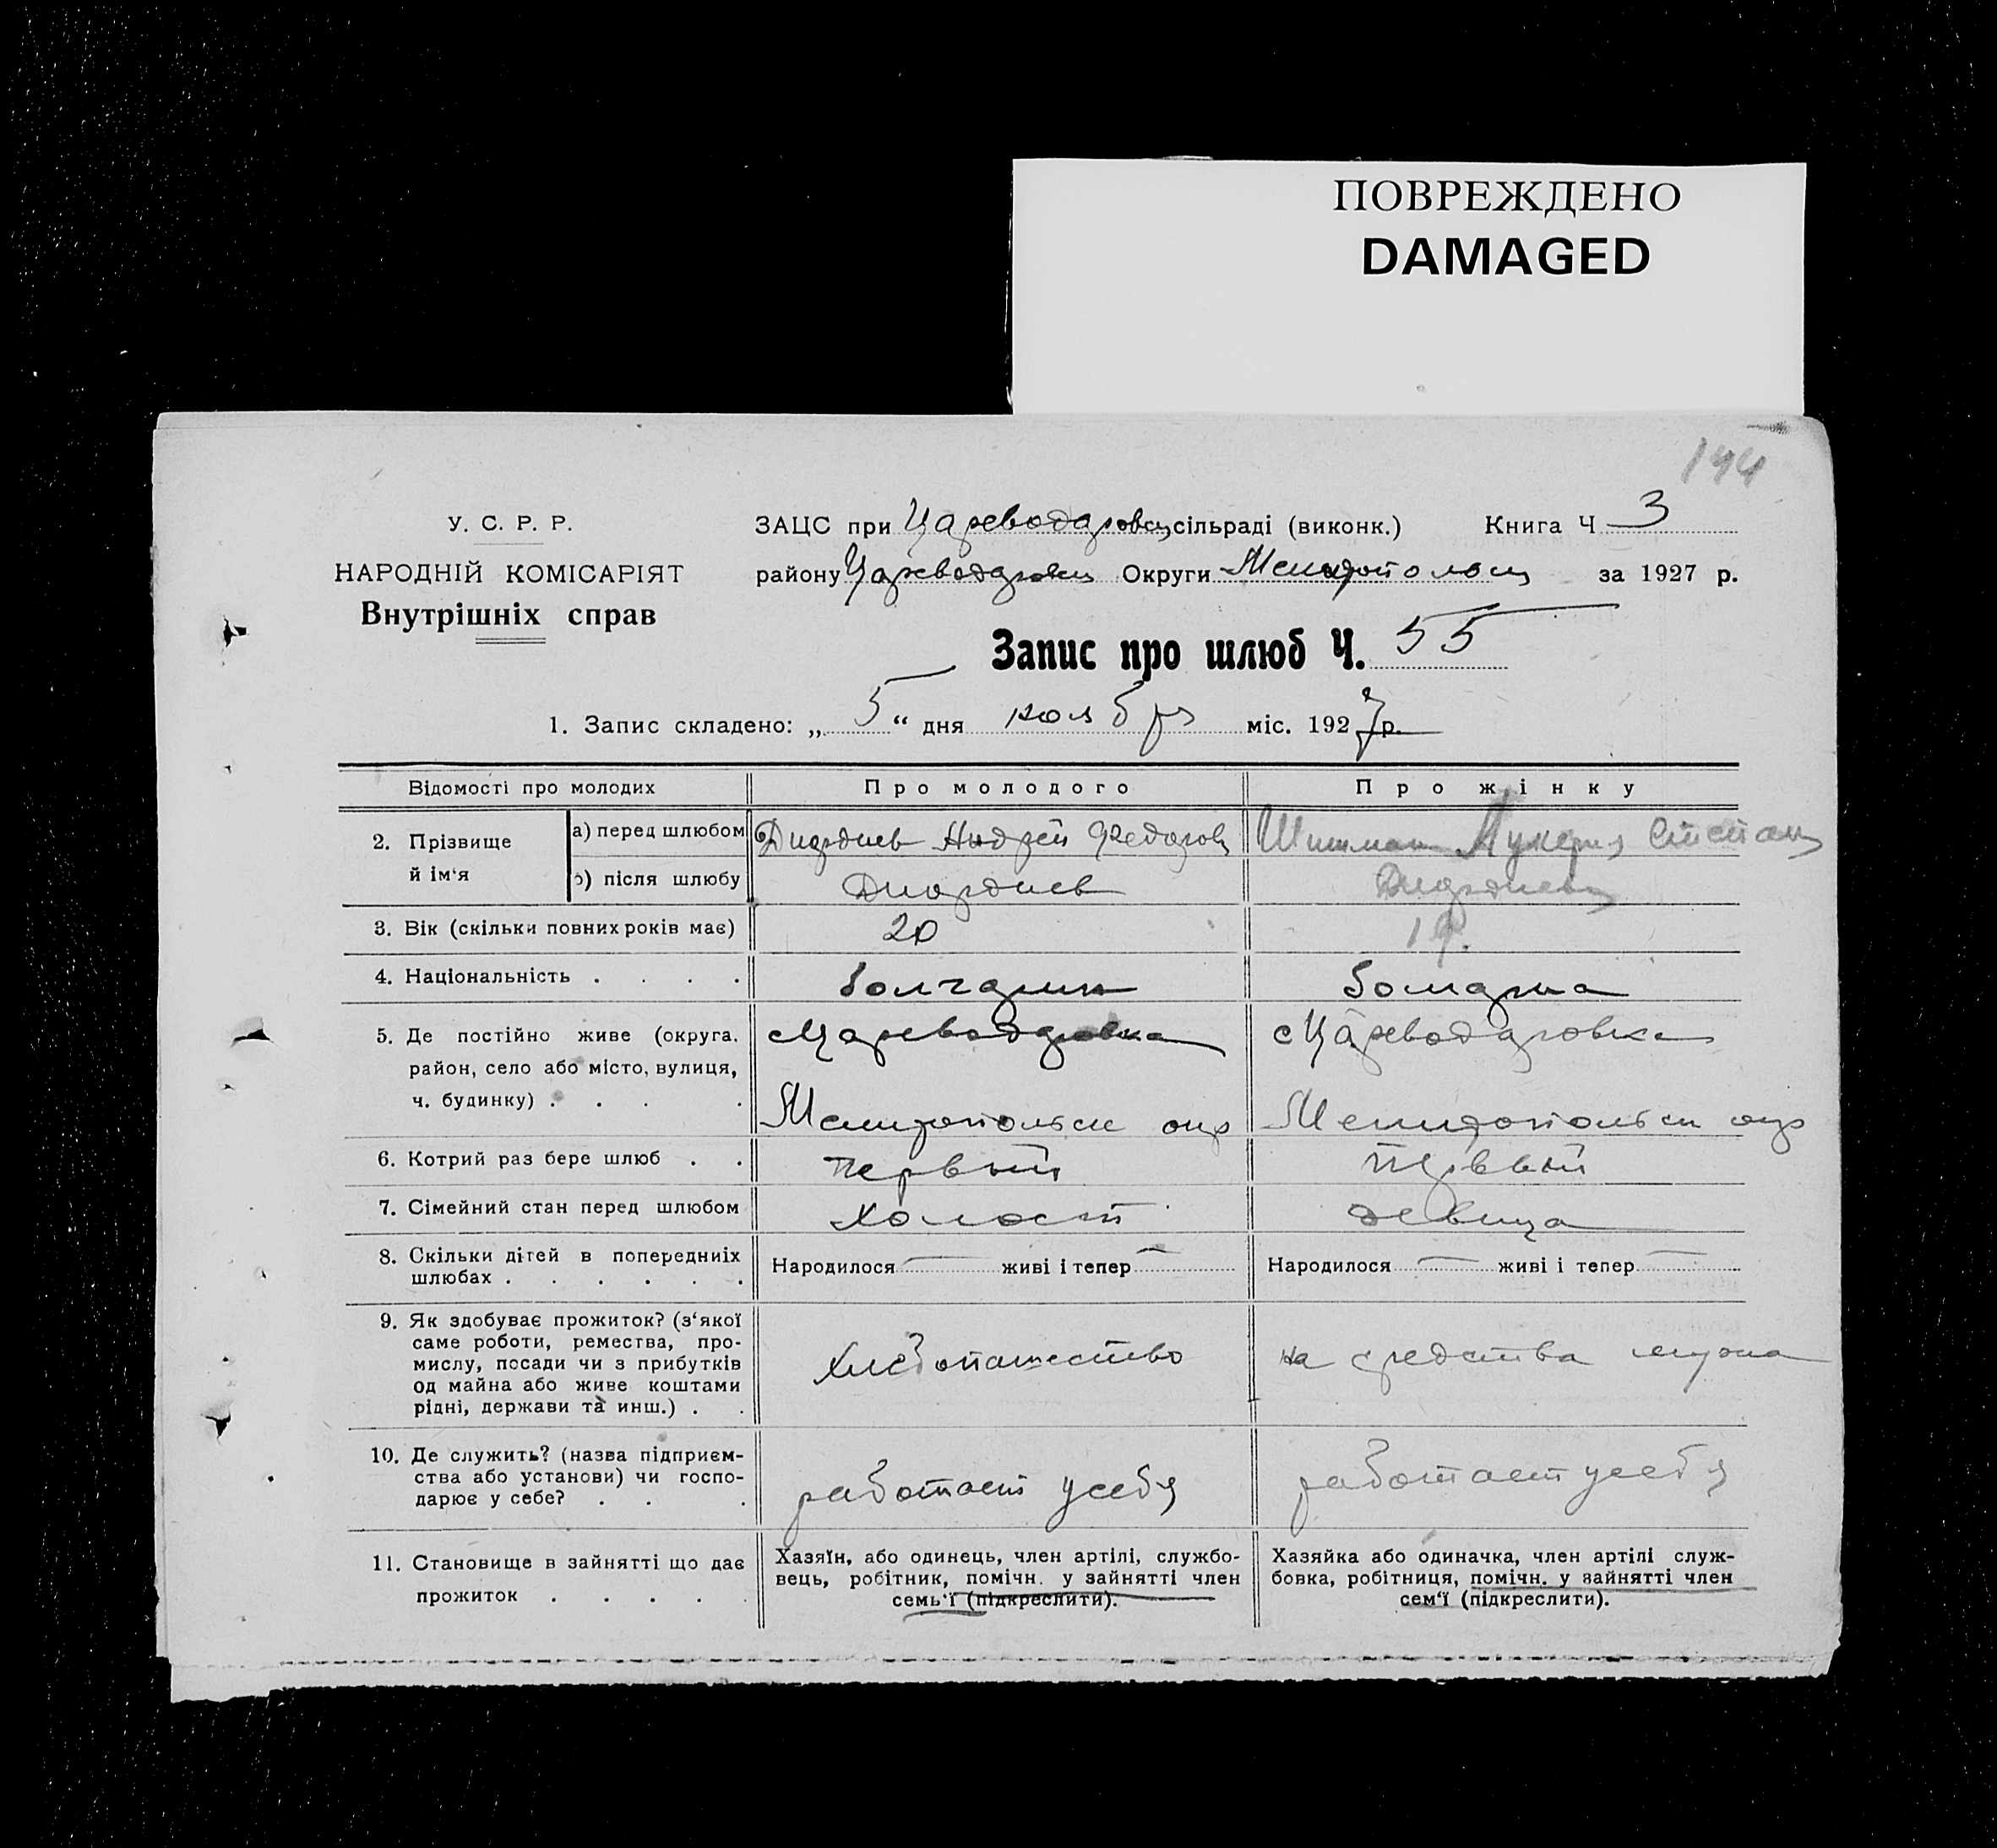 ПОВРЕЖДЕНО
DAMAGED
144
У. С. Р. Р.
НАРОДНІЙ КОМІСАРІЯТ
Внутрішніх справ
ЗАЦС при Цареводаровск сільраді (виконк.) Книга Ч 3
району Цареводаровск Округи Мелитопольск за 1927 р.
Запис про шлюб Ч. 55
1. Запис складено: „ 5 “ дня ноября міс. 1927 р.
Відомості про молодих Про молодого Про жінку
2. Прізвище й ім‘я
а) перед шлюбом Диордиев Андрей Федоров Шишман Лукерия Степан
б) після шлюбу Диордиев Диордиева
3. Вік (скільки повних років має) 20 19.
4. Національність . . . . болгарин болгарка
5. Де постійно живе (округа, с Цареводаровка с Цареводаровка
район, село або місто, вулиця,
ч. будинку) . . . . Мелитопольск окр Мелитопольск окр
6. Котрий раз бере шлюб . . Первый Первый
7. Сімейний стан перед шлюбом Холост девица
8. Скільки дітей в попередниіх
шлюбах . . . . . . Народилося — живі і тепер — Народилося — живі і тепер —
9. Як здобуває прожиток? (з‘якої
саме роботи, ремества, про-
мислу, посади чи з прибутків
од майна або живе коштами
рідні, держави та инш.) . . Хлебопашество на средства мужа
10. Де служить? (назва підприєм-
ства або установи) чи госпо-
дарює у себе? . . . работает у себя работает у себя
11. Становище в зайнятті що дає
прожиток . . . . .
Хазяїн, або одинець, член артілі, службо-
вець, робітник, помічн. у зайнятті член
семь‘ї (підкреслити).
Хазяйка або одиначка, член артілі служ-
бовка, робітниця, помічн. у зайнятті член
сем‘ї (підкреслити).